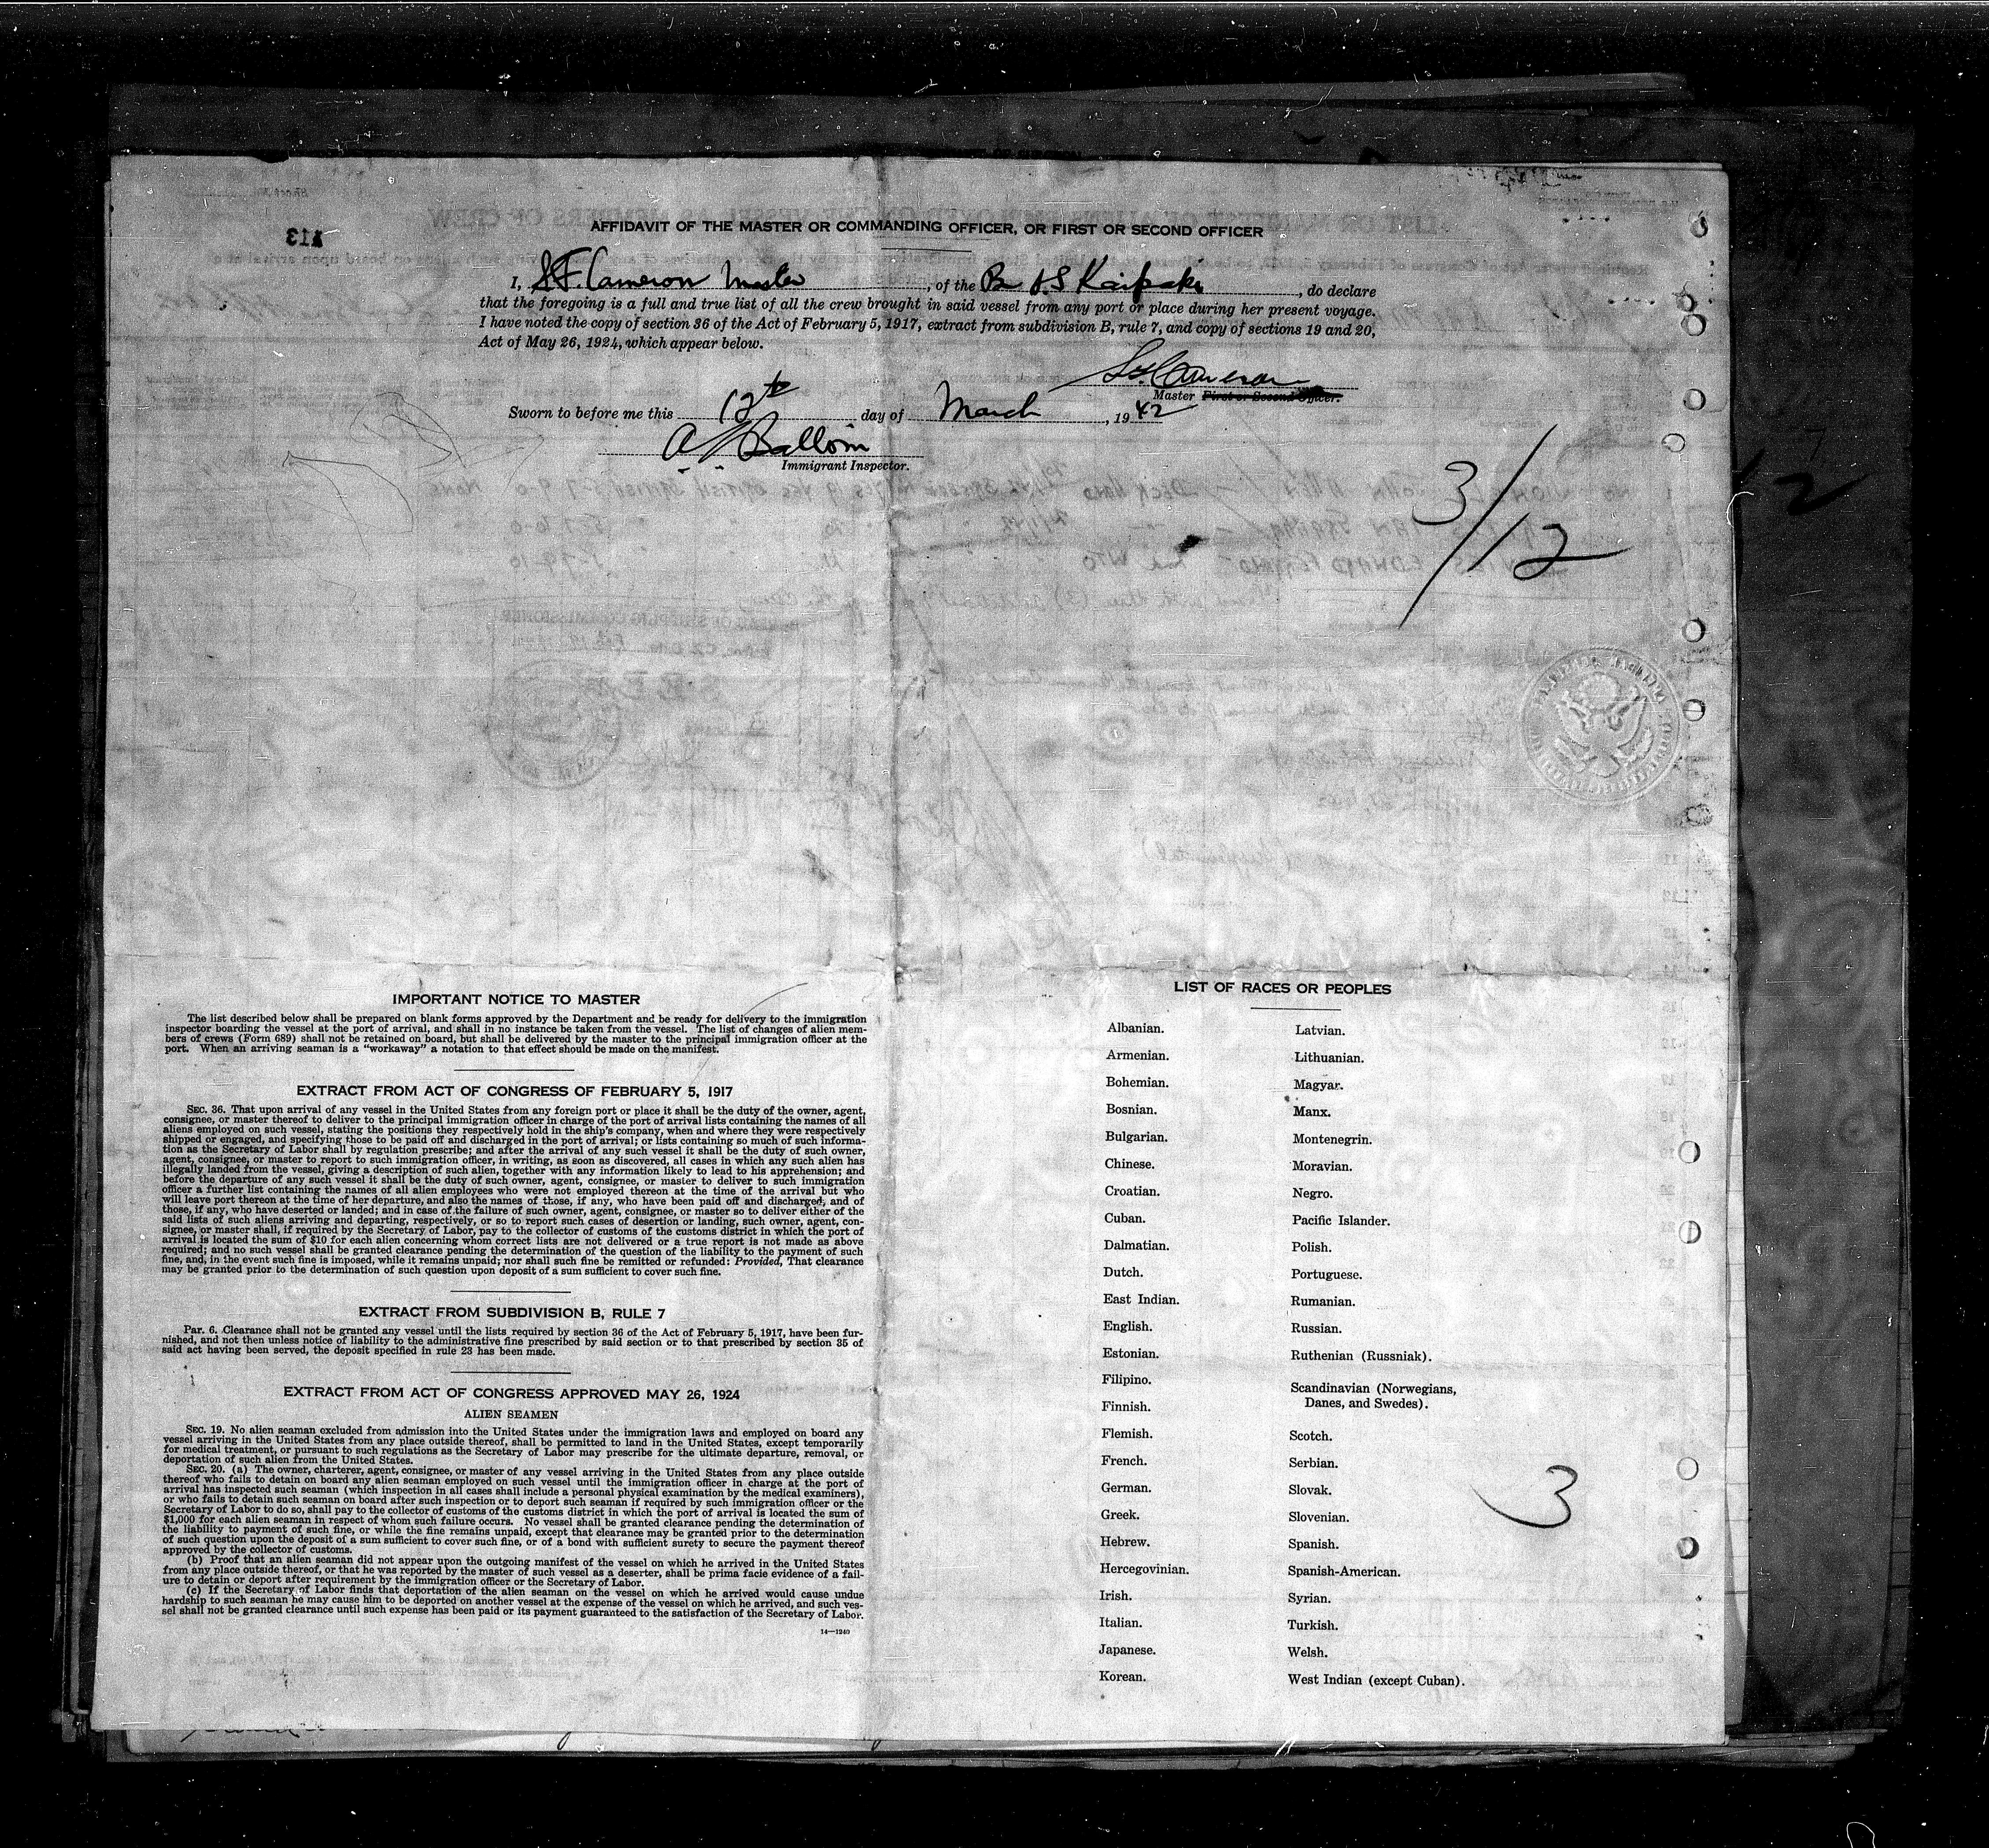 AFFIDAVIT OF THE MASTER OR COMMANDING OFFICER, OR FIRST OR SECOND OFFICER
I, S.F. Cameron Master, of the Br S.S Kaipaki, do declare
that the foregoing is a full and true list of all the crew brought in said vessel from any port or place during her present voyage.
I have noted the copy of section 36 of the Act of February 5, 1917, extract from subdivision B, rule 7, and copy of sections 19 and 20,
Act of May 26, 1924, which appear below.
Cameron
Master First or Second Officer.
Sworn to before me this 12th day of March, 1942
Immigrant Inspector.
3/12
IMPORTANT NOTICE TO MASTER
The list described below shall be prepared on blank forms approved by the Department and be ready for delivery to the immigration
inspector boarding the vessel at the port of arrival, and shall in no instance be taken from the vessel. The list of changes of alien mem-
bers of crews (Form 689) shall not be retained on board, but shall be delivered by the master to the principal immigration officer at the
port. When an arriving seaman is a "workaway" a notation to that effect should be made on the manifest.
EXTRACT FROM ACT OF CONGRESS OF FEBRUARY 5, 1917
SEC. 36. That upon arrival of any vessel in the United States from any foreign port or place it shall be the duty of the owner, agent,
consignee, or master thereof to deliver to the principal immigration officer in charge of the port of arrival lists containing the names of all
aliens employed on such vessel, stating the positions they respectively hold in the ship's company, when and where they were respectively
shipped or engaged, and specifying those to be paid off and discharged in the port of arrival; or lists containing so much of such informa-
tion as the Secretary of Labor shall by regulation prescribe; and after the arrival of any such vessel it shall be the duty of such owner,
agent, consignee, or master to report to such immigration officer, in writing, as soon as discovered, all cases in which any such alien has
illegally landed from the vessel, giving a description of such alien, together with any information likely to lead to his apprehension; and
before the departure of any such vessel it shall be the duty of such owner, agent, consignee, or master to deliver to such immigration
officer a further list containing the names of all alien employees who were not employed thereon at the time of the arrival but who
will leave port thereon at the time of her departure, and also the names of those, if any, who have been paid off and discharged, and of
those, if any, who have deserted or landed; and in case of the failure of such owner, agent, consignee, or master so to deliver either of the
said lists of such aliens arriving and departing, respectively, or so to report such cases of desertion or landing, such owner, agent, con-
signee, or master shall, if required by the Secretary of Labor, pay to the collector of customs of the customs district in which the port of
arrival is located the sum of $10 for each alien concerning whom correct lists are not delivered or a true report is not made as above
required; and no such vessel shall be granted clearance pending the determination of the question of the liability to the payment of such
fine, and, in the event such fine is imposed, while it remains unpaid; nor shall such fine be remitted or refunded: Provided, That clearance
may be granted prior to the determination of such question upon deposit of a sum sufficient to cover such fine.
EXTRACT FROM SUBDIVISION B, RULE 7
Par. 6. Clearance shall not be granted any vessel until the lists required by section 36 of the Act of February 5, 1917, have been fur-
nished, and not then unless notice of liability to the administrative fine prescribed by said section or to that prescribed by section 35 of
said act having been served, the deposit specified in rule 23 has been made.
EXTRACT FROM ACT OF CONGRESS APPROVED MAY 26, 1924
ALIEN SEAMEN
SEC. 19. No alien seaman excluded from admission into the United States under the immigration laws and employed on board any
vessel arriving in the United States from any place outside thereof, shall be permitted to land in the United States, except temporarily
for medical treatment, or pursuant to such regulations as the Secretary of Labor may prescribe for the ultimate departure, removal, or
deportation of such alien from the United States.
SEC. 20. (a) The owner, charterer, agent, consignee, or master of any vessel arriving in the United States from any place outside
thereof who fails to detain on board any alien seaman employed on such vessel until the immigration officer in charge at the port of
arrival has inspected such seaman (which inspection in all cases shall include a personal physical examination by the medical examiners),
or who fails to detain such seaman on board after such inspection or to deport such seaman if required by such immigration officer or the
Secretary of Labor to do so, shall pay to the collector of customs of the customs district in which the port of arrival is located the sum of
$1,000 for each alien seaman in respect of whom such failure occurs. No vessel shall be granted clearance pending the determination of
the liability to payment of such fine, or while the fine remains unpaid, except that clearance may be granted prior to the determination
of such question upon the deposit of a sum sufficient to cover such fine, or of a bond with sufficient surety to secure the payment thereof
approved by the collector of customs.
(b) Proof that an alien seaman did not appear upon the outgoing manifest of the vessel on which he arrived in the United States
from any place outside thereof, or that he was reported by the master of such vessel as a deserter, shall be prima facie evidence of a fail-
ure to detain or deport after requirement by the immigration officer or the Secretary of Labor.
(c) If the Secretary of Labor finds that deportation of the alien seaman on the vessel on which he arrived would cause undue
hardship to such seaman he may cause him to be deported on another vessel at the expense of the vessel on which he arrived, and such ves-
sel shall not be granted clearance until such expense has been paid or its payment guaranteed to the satisfaction of the Secretary of Labor.
14—1240
LIST OF RACES OR PEOPLES
Albanian.
Armenian.
Bohemian.
Bosnian.
Bulgarian.
Chinese.
Croatian.
Cuban.
Dalmatian.
Dutch.
East Indian.
English.
Estonian.
Filipino.
Finnish.
Flemish.
French.
German.
Greek.
Hebrew.
Hercegovinian.
Irish.
Italian.
Japanese.
Korean.
Latvian.
Lithuanian.
Magyar.
Manx.
Montenegrin.
Moravian.
Negro.
Pacific Islander.
Polish.
Portuguese.
Rumanian.
Russian.
Ruthenian (Russniak).
Scandinavian (Norwegians,
Danes, and Swedes).
Scotch.
Serbian.
Slovak.
Slovenian.
Spanish.
Spanish-American.
Syrian.
Turkish.
Welsh.
West Indian (except Cuban).
3